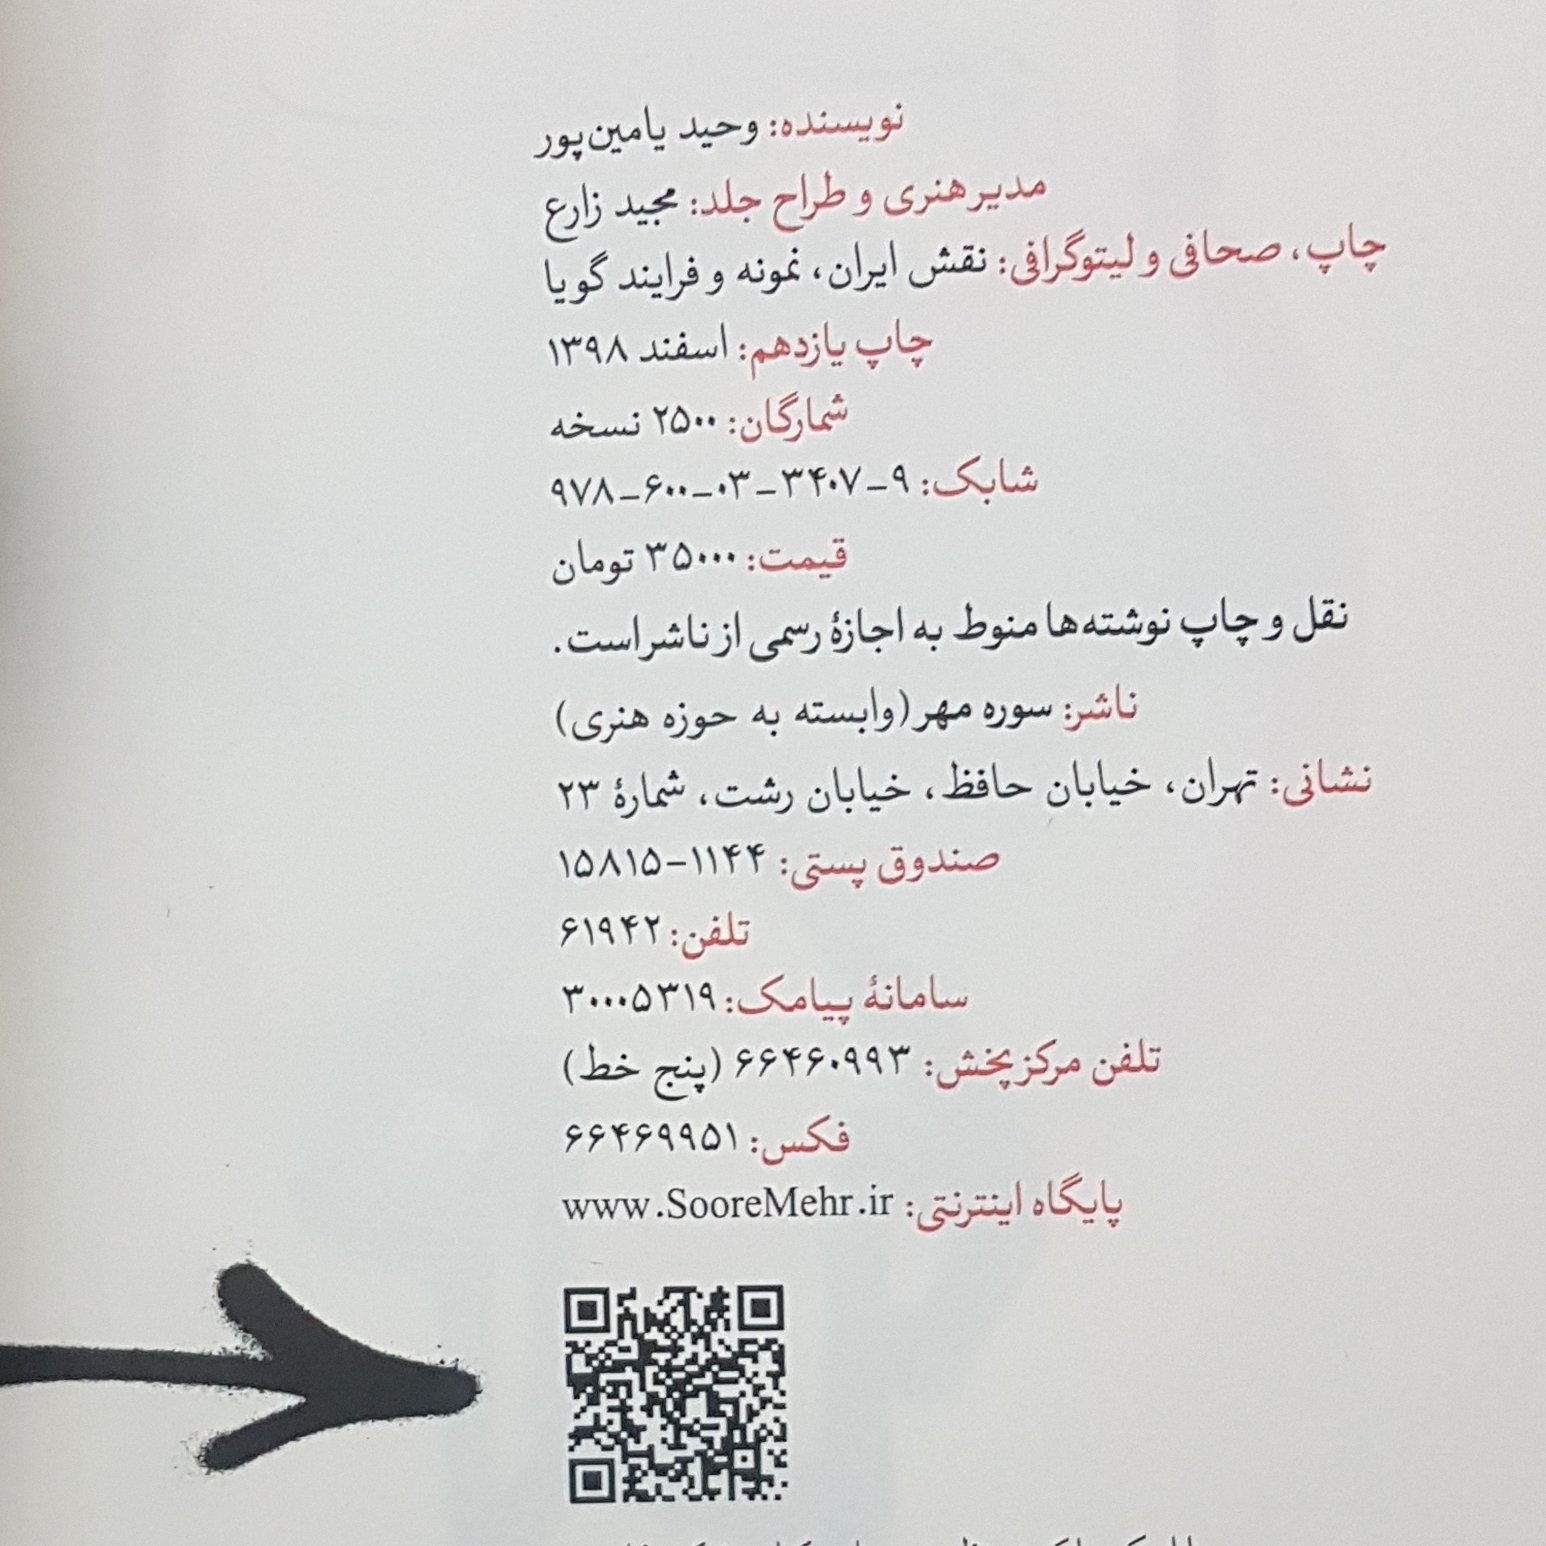 نویسنده: وحید یامین‌پور
مدیر هنری و طراح جلد: مجید زارع
چاپ، صحافی و لیتوگرافی: نقش ایران، نمونه و فرایند گویا
چاپ یازدهم: اسفند ۱۳۹۸
شمارگان: ۲۵۰۰ نسخه
شابک: ۹۷۸-۶۰۰-۰۳-۳۴۰۷-۹
قیمت: ۳۵۰۰۰ تومان
نقل و چاپ نوشته‌ها منوط به اجازهٔ رسمی از ناشر است.
ناشر: سوره مهر (وابسته به حوزه هنری)
نشانی: تهران، خیابان حافظ، خیابان رشت، شمارهٔ ۲۳
صندوق پستی: ۱۵۸۱۵-۱۱۴۴
تلفن: ۶۱۹۴۲
سامانهٔ پیامک: ۳۰۰۰۵۳۱۹
تلفن مرکز پخش: ۶۶۴۶۰۹۹۳ (پنج خط)
فکس: ۶۶۴۶۹۹۵۱
پایگاه اینترنتی: www.SooreMehr.ir